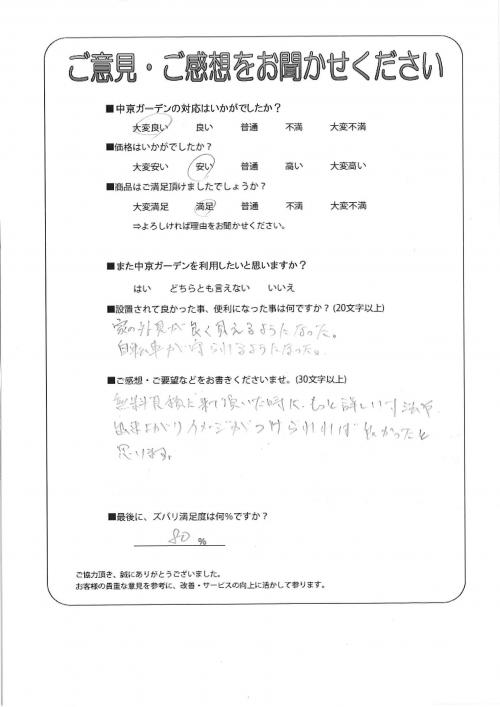 ご意見・ご感想をお聞かせください
■中京ガーデンの対応はいかがでしたか？
大変良い 良い 普通 不満 大変不満
■価格はいかがでしたか？
大変安い 安い 普通 高い 大変高い
■商品はご満足頂けましたでしょうか？
大変満足 満足 普通 不満 大変不満
⇒よろしければ理由をお聞かせください。
■また中京ガーデンを利用したいと思いますか？
はい どちらとも言えない いいえ
■設置されて良かった事、便利になった事は何ですか？(20文字以上)
家の外見が良く見えるようになった。
自転車が守られるようになった。
■ご感想・ご要望などをお書きくださいませ。(30文字以上)
無料見積に来て頂いた時に、もっと詳しい寸法や
出来上がりイメージがつけられれば 良かったと
思います。
■最後に、ズバリ満足度は何%ですか？
80 %
ご協力頂き、誠にありがとうございました。
お客様の貴重な意見を参考に、改善・サービスの向上に活かして参ります。